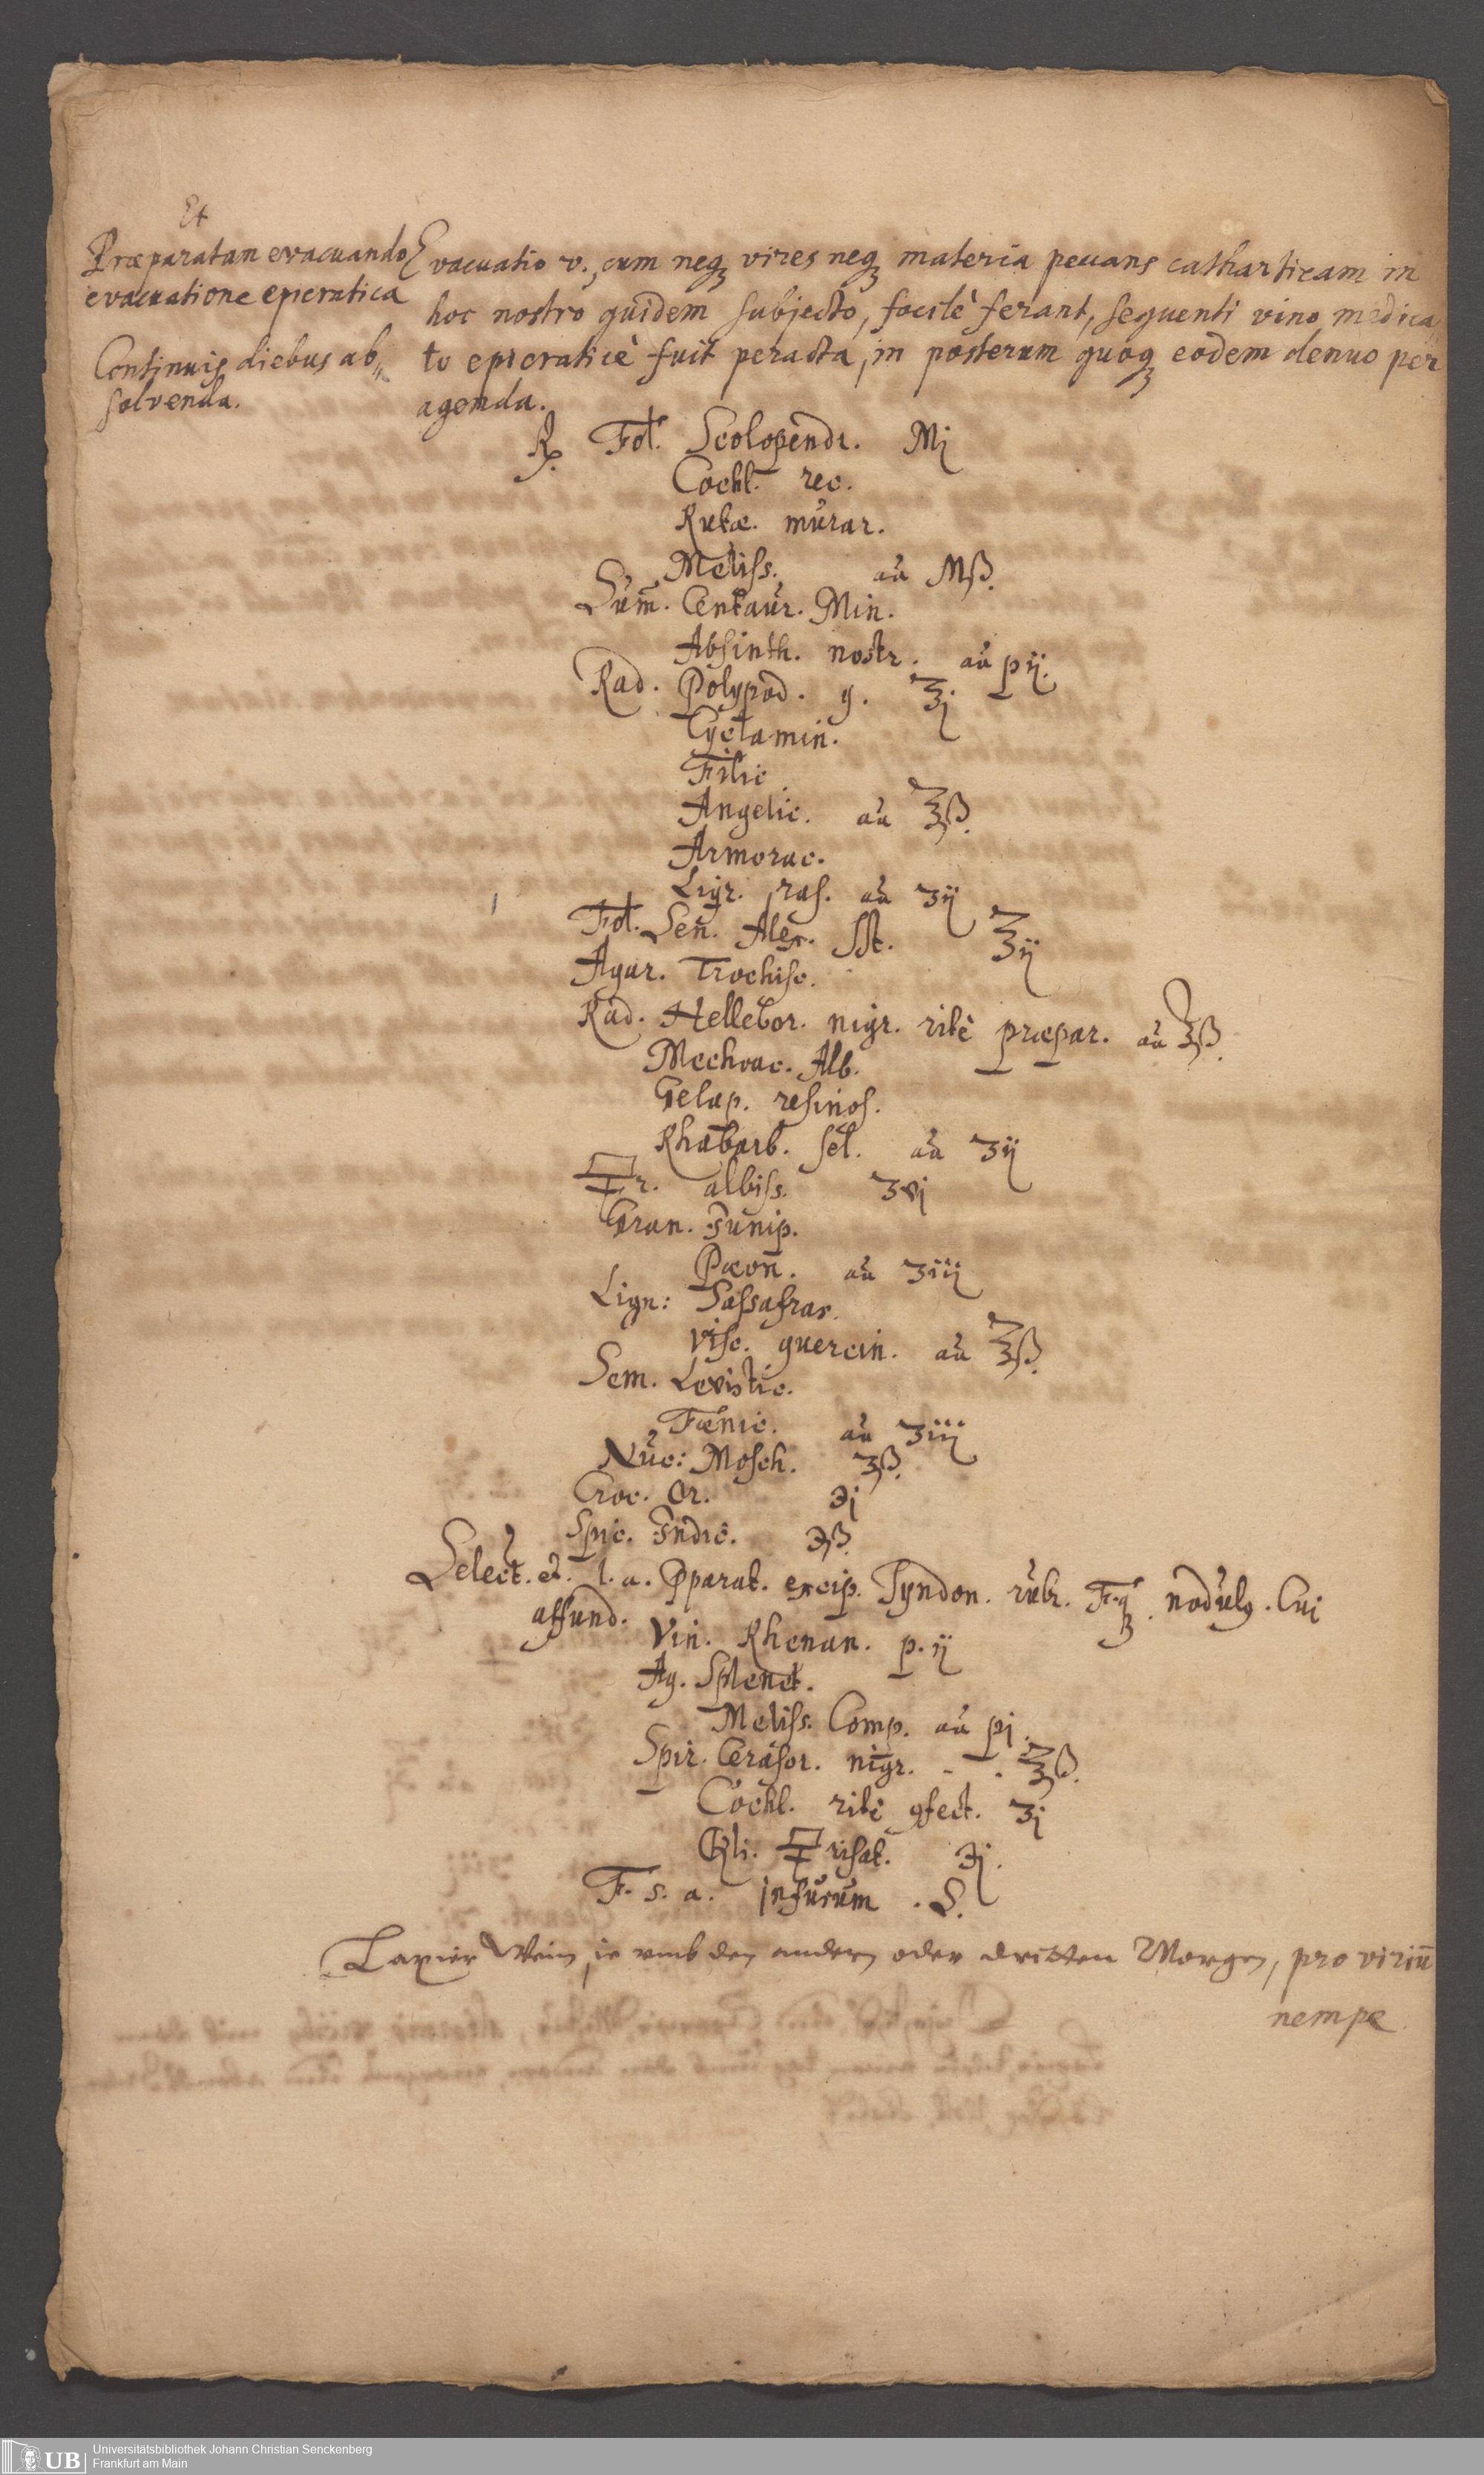 Et
Præparatam evacuando
evacuatione epicratica
Continuis diebus ab⸗
solvenda.
Evacuatio v., cum neqꝫ vires neqꝫ materia peccans catharticam in
hoc nostro quidem subjecto, facilè ferant, sequenti vino medica
to epicraticè fuit peracta, in posterum quoqꝫ eodem denuo per
agenda.
℞. Fol. Scolopendr. Mj
Cochl. rec.
Rutæ. murar.
Meliss. aa Mß.
Sum̄. Centaur. Min.
Absinth. nostr. aa pij.
Rad. Polypod. q. ℥j
Cyclamin.
Filic
Angelic. aa ℥ß.
Armorac.
Liqr. ras. aa ʒij
Fol. Sen̄. Alex. SSt. ℥ij
Agar. Trochisc.
Rad. Hellebor. nigr. ritè præpar. aa ℥ß.
Mechoac. Alb.
Gelap. resinos.
Rhabarb. sel. aa ʒij
🜿r. albiss. ʒvj
Gran. Junip.
Pæon̄. aa ʒiij
Lign: Sassafras.
Visc. quercin. aa ℥ß.
Sem. Levistic.
Fœnic. aa ʒiij
Nuc: Mosch. ʒß.
Croc. Or. ℈j
Spic. Indic. ℈ß.
Select. et. l. a. Pparat. excip. Syndon. rubr. F.qꝫ. nodulꝯ. Cui
affund. Vin. Rhenan. p. ij
Aq. Splenet.
Meliss. Comp. aa pj.
Spir. Cerasor. nigr. - - ℥ß.
Cochl. ritè ꝯfect. ʒj
🜿risat. ℈j.
F. s. a. infusum. S.
Laxier Wein, je umb den andern oder dritten Morgen, pro viriū
nempe
UB
Universitätsbibliothek Johann Christian Senckenberg
Frankfurt am Main